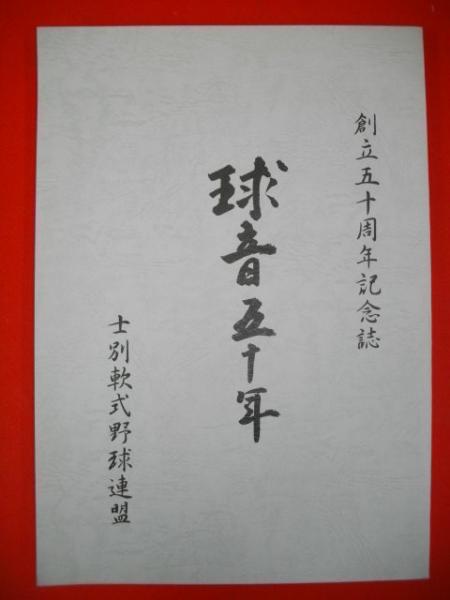 創立五十周年記念誌
球音五十年
士別軟式野球連盟